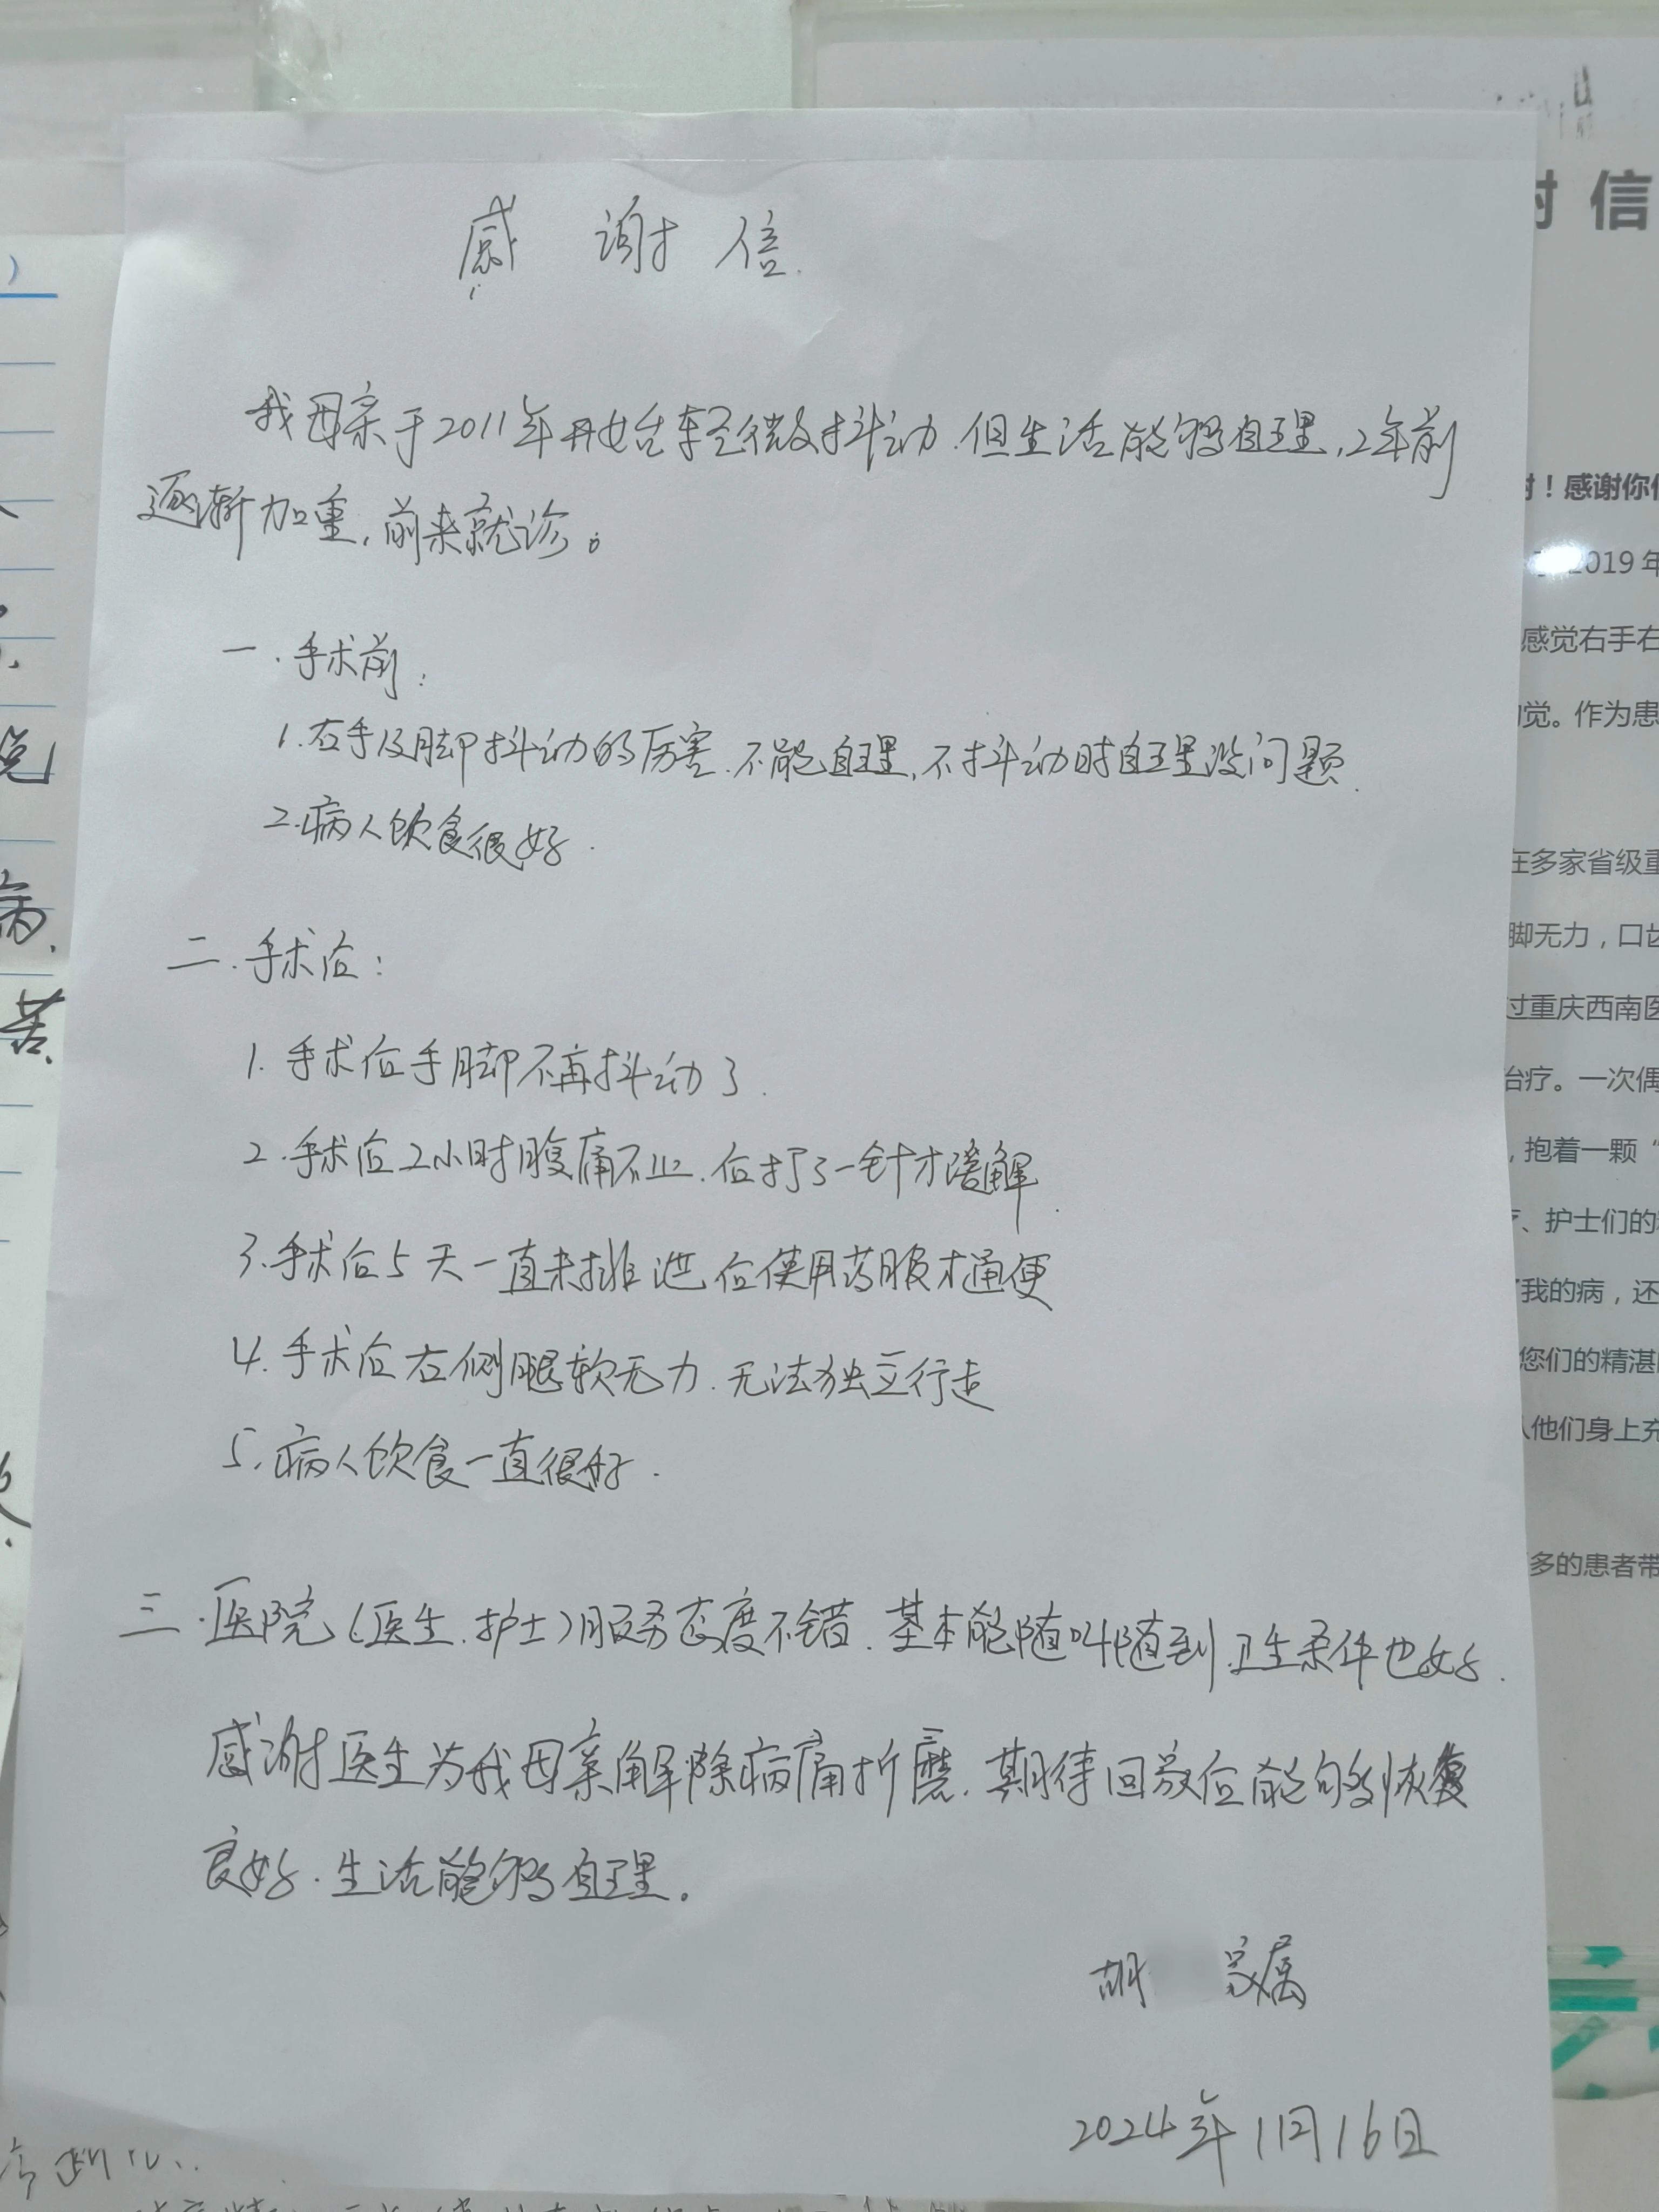 感谢信
我母亲于2011年开始轻微抖动.但生活能够自理,2年前
逐渐加重,前来就诊。
一.手术前:
1.右手及脚抖动的厉害.不能自理,不抖动时自理没问题.
2.病人饮食很好.
二.手术后:
1.手术后手脚不再抖动了.
2.手术后2小时腹痛不止.后打了一针才缓解.
3.手术后5天一直未排泄,后使用药服才通便
4.手术后右侧腿软无力.无法独立行走
5.病人饮食一直很好.
三.医院(医生.护士)服务态度不错.基本能随叫随到.卫生条件也好.
感谢医生为我母亲解除病痛折磨.期待回家后能够恢复
良好.生活能够自理.
胡 家属
2024年1月16日
谢信
谢!感谢你
2019年
感觉右手右
觉。作为患
在多家省级重
脚无力,口齿
过重庆西南医
治疗。一次偶
,抱着一颗“
、护士们的
我的病,还
您们的精湛
人他们身上充
多的患者带
病.
苦.